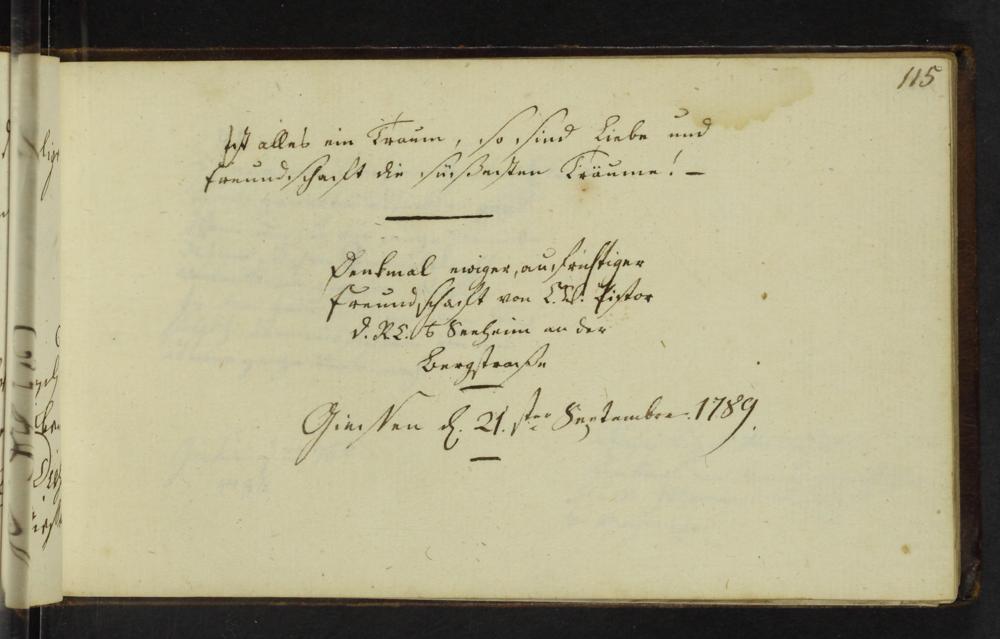 115
Ist alles ein Traum, so sind Liebe und
Freundschafft die süßesten Träume! —
Denkmal ewiger, aufrichtiger
Freundschafft von C. W. Pistor
d. R. C. Seeheim an der
Bergstraße
Giessen d. 21.ster September. 1789.